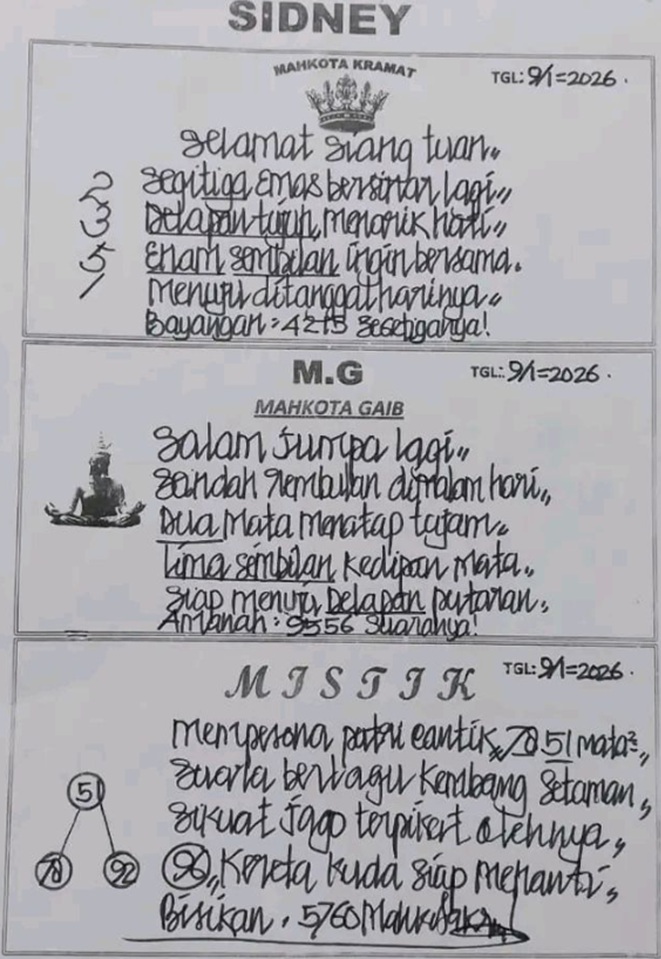 SIDNEY
MAHKOTA KRAMAT
TGL: 9/1=2026.
Selamat siang tuan,,
Segitiga Emas bersinar lagi,,
Delapan tujuh, menarik hati,,
Enam sembilan ingin bersama.
Menuju ditanggal harinya,,
Bayangan = 4215 sesetiganya!
2
3
5
1
M.G
TGL: 9/1=2026.
MAHKOTA GAIB
Salam jumpa lagi,,
Seindah rembulan dimalam hari,,
Dua Mata menatap tajam,,
Lima sembilan kedipan mata,,
Siap menuju Delapan putaran,,
AManah : 9556 suaranya!
MISTIK
TGL: 9/1=2026.
Mempesona putri cantik, 78 51 mata²,,
Suara berlagu Kembang Setaman,,
Sikuat Jago terpikat olehnya,,
96,, Kereta kuda siap menanti,,
Bisikan. 5760
51
78
92